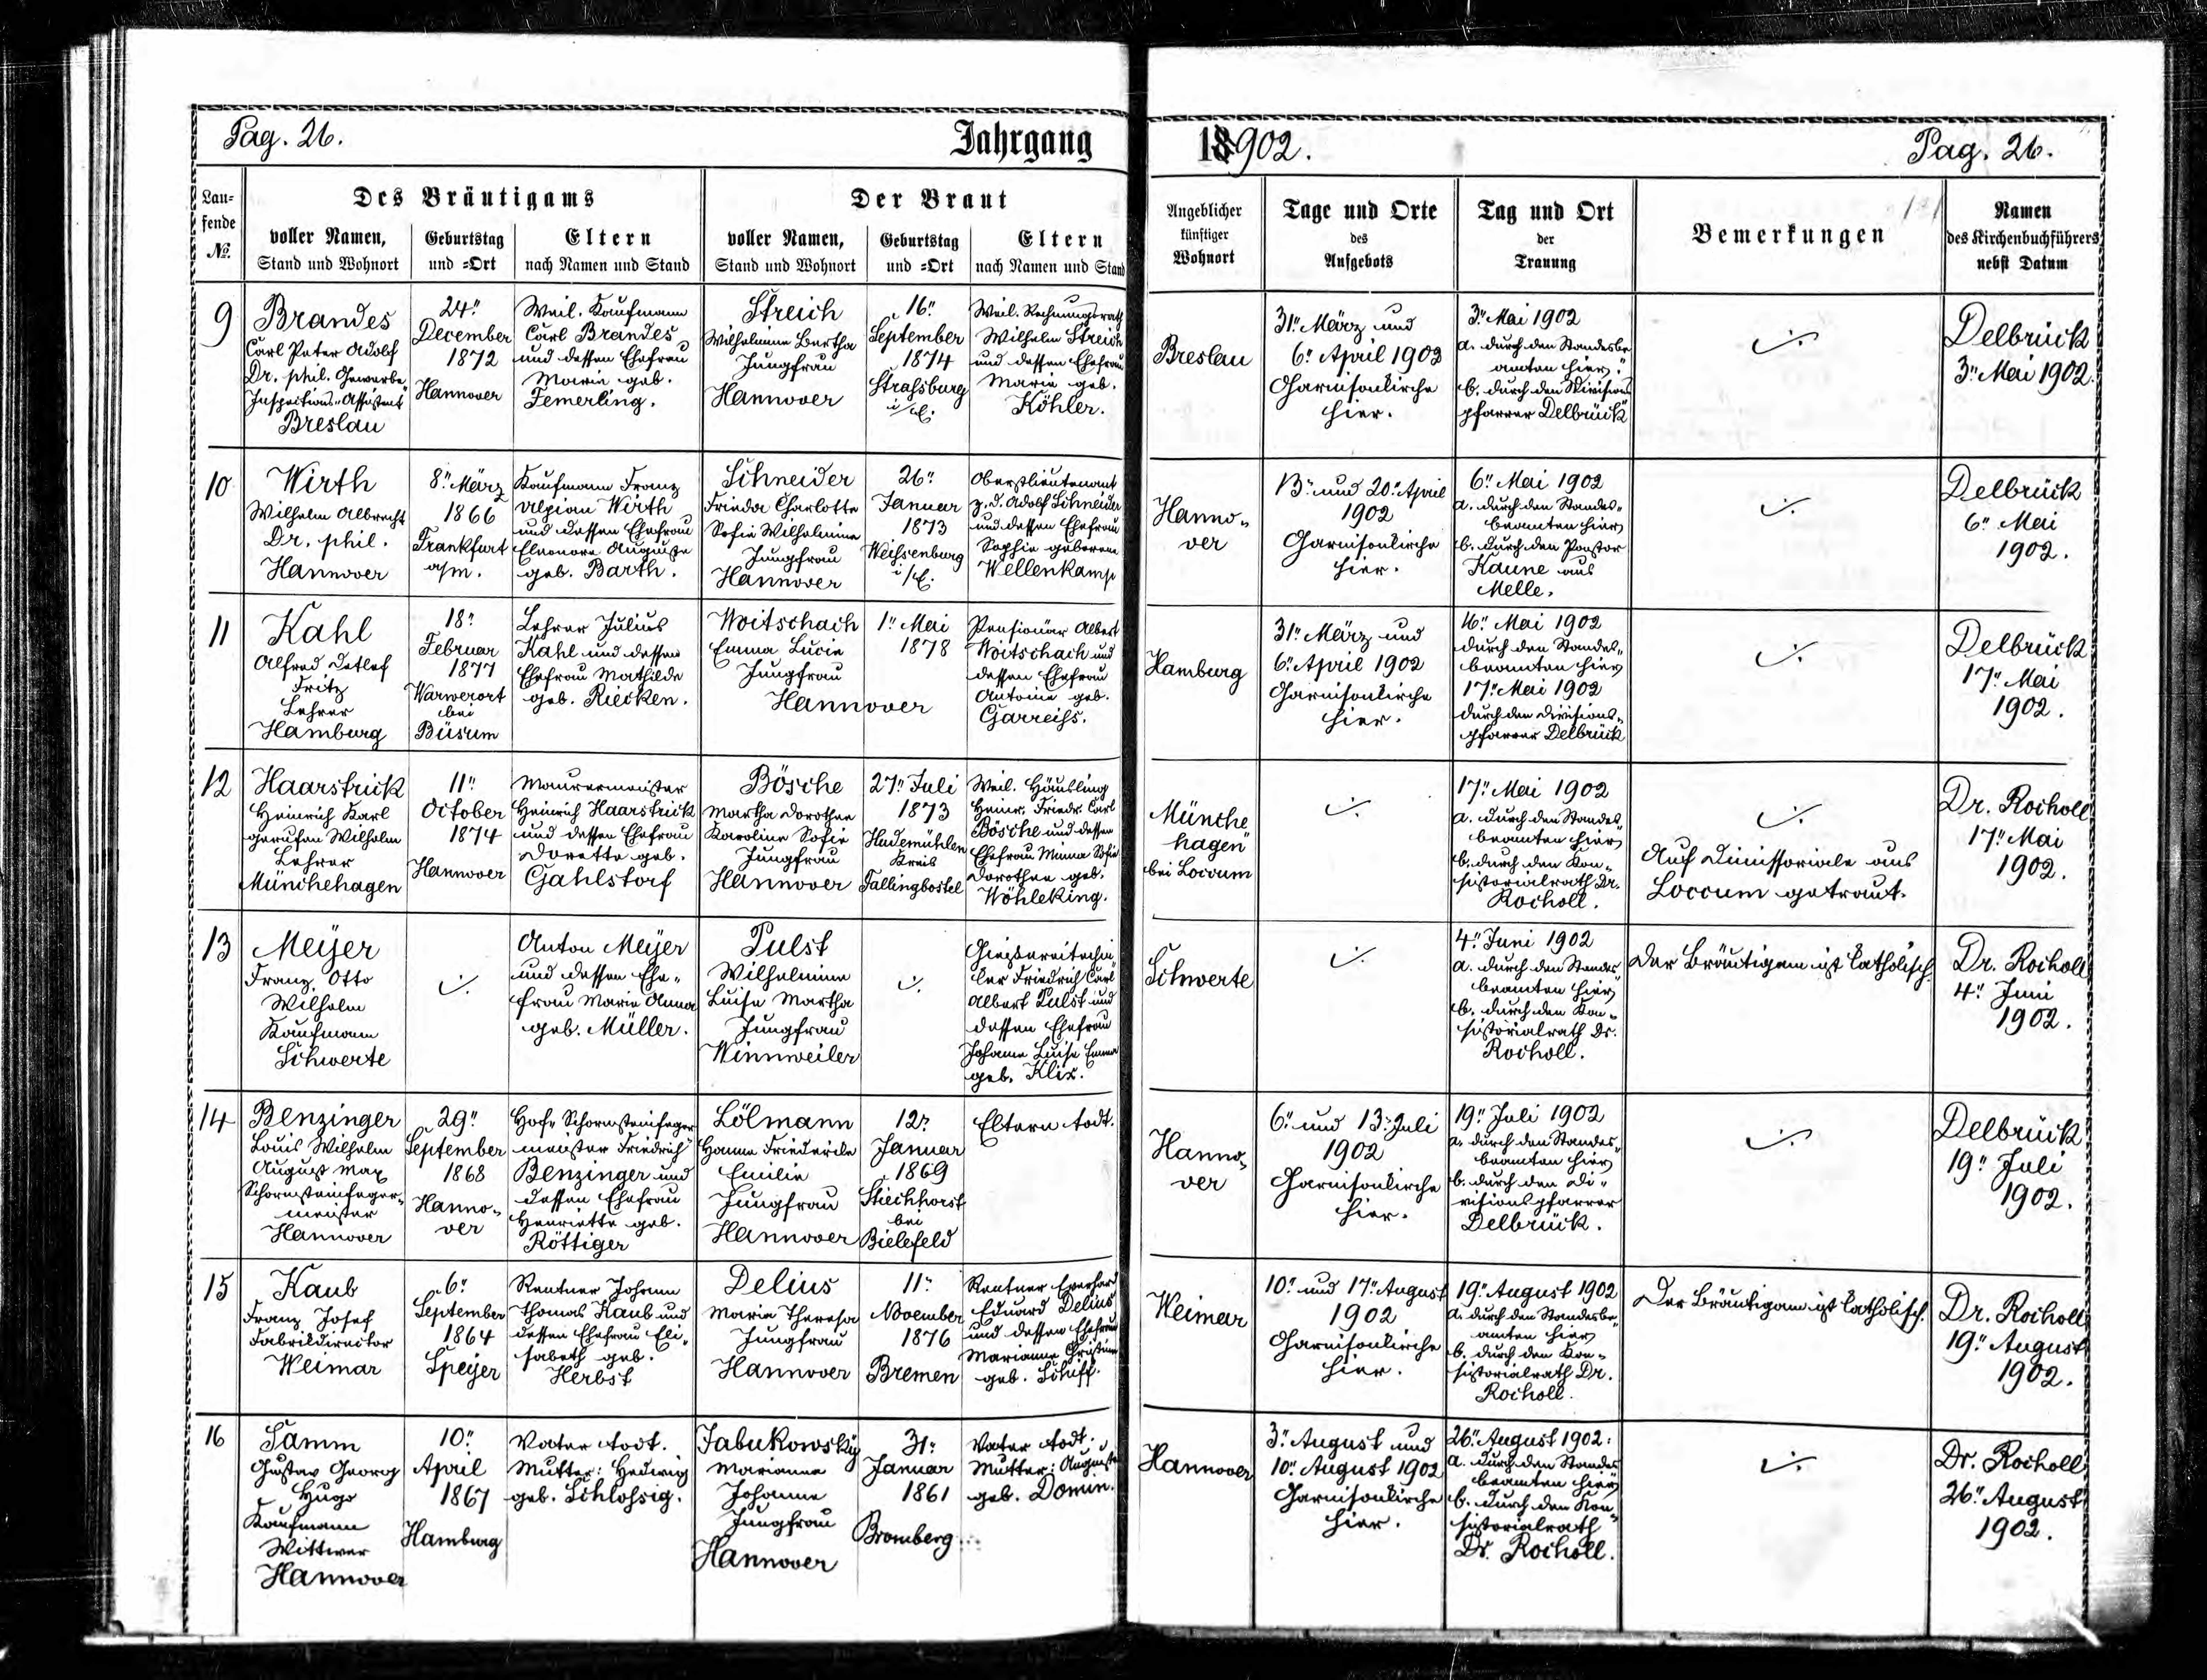 Pag. 26.
Jahrgang
18902.
Pag. 26.
Lau-
fende
No.
Des Bräutigams
voller Namen,
Stand und Wohnort
Geburtstag
und =Ort
Eltern
nach Namen und Stand
Der Braut
voller Namen,
Stand und Wohnort
Geburtstag
und =Ort
Eltern
nach Namen und Stand
Angeblicher
künftiger
Wohnort
Tage und Orte
des
Aufgebots
Tag und Ort
der
Trauung
Bemerkungen
Namen
des Kirchenbuchführers
nebst Datum
9
Brandes
Carl Peter Adolf
Dr. phil. Gewerbe-
Inspections-Assistent
Breslau
24.
December
1872
Hannover
Weil. Kaufmann
Carl Brandes
und dessen Ehefrau
Marie geb.
Femerling.
Streich
Wilhelmine Bertha
Jungfrau
Hannover
16.
September
1874
Strassburg
i/E.
Weil. Rechnungsrath
Wilhelm Streich
und dessen Ehefrau
Marie geb.
Köhler.
Breslau
31. März und
6. April 1902
Garnisonkirche
hier.
3. Mai 1902
a. durch den Standesbe-
amten hier,
b. durch den Divisions-
pfarrer Delbrück
Delbrück
3. Mai 1902.
10
Wirth
Wilhelm Albrecht
Dr. phil.
Hannover
8. März
1866
Frankfurt
a/m.
Kaufmann Franz
Ulpian Wirth
und dessen Ehefrau
Eleonore Auguste
geb. Barth.
Schneider
Frieda Charlotte
Sofie Wilhelmine
Jungfrau
Hannover
26.
Januar
1873
Weissenburg
i/E.
Oberstlieutenant
z. D. Adolf Schneider
und dessen Ehefrau
Sophie geborene
Wellenkamp
Hanno-
ver
13. und 20. April
1902
Garnisonkirche
hier.
6. Mai 1902
a. durch den Standes-
beamten hier
b. durch den Pastor
Kaune aus
Melle.
Delbrück
6. Mai
1902.
11
Kahl
Alfred Detlef
Fritz
Lehrer
Hamburg
18.
Februar
1877
Warwerort
bei
Büsum
Lehrer Julius
Kahl und dessen
Ehefrau Mathilde
geb. Riecken.
Woitschach
Emma Lucie
Jungfrau
Hannover
1. Mai
1878
Pensionär Albert
Woitschach und
dessen Ehefrau
Antonie geb.
Garreiss.
Hamburg
31. März und
6. April 1902
Garnisonkirche
hier.
16. Mai 1902
durch den Standes-
beamten hier
17. Mai 1902
durch den Divisions-
pfarrer Delbrück
Delbrück
17. Mai
1902.
12
Haarstrick
Heinrich Karl
gerufen Wilhelm
Lehrer
Münchehagen
11.
October
1874
Hannover
Maurermeister
Heinrich Haarstrick
und dessen Ehefrau
Dorette geb.
Gahlstorf
Bösche
Martha Dorothee
Karoline Sofie
Jungfrau
Hannover
27. Juli
1873
Hudemühlen
Kreis
Fallingbostel
Weil. Häusling
Heinr. Friedr. Carl
Bösche und dessen
Ehefrau Minna Sofie
Dorothee geb.
Wöhleking.
Münche-
hagen
bei Loccum
17. Mai 1902
a. durch den Standes-
beamten hier
b. durch den Kon-
sistorialrath Dr.
Rocholl.
Auf Dimissoriale aus
Loccum getraut.
Dr. Rocholl
17. Mai
1902.
13
Meijer
Franz, Otto
Wilhelm
Kaufmann
Schwerte
Anton Meijer
und dessen Ehe-
frau Marie Anna
geb. Müller.
Pulst
Wilhelmine
Luise Martha
Jungfrau
Winnweiler
Giessereitechni-
ker Friedrich Carl
Albert Pulst und
dessen Ehefrau
Johanne Luise Emma
geb. Klix.
Schwerte
4. Juni 1902
a. durch den Standes-
beamten hier
b. durch den Kon-
sistorialrath Dr.
Rocholl.
Der Bräutigam ist katholisch.
Dr. Rocholl
4. Juni
1902.
14
Benzinger
Louis Wilhelm
August Max
Schornsteinfeger-
meister
Hannover
29.
September
1868
Hanno-
ver
Hof-Schornsteinfeger-
meister Friedrich
Benzinger und
dessen Ehefrau
Henriette geb.
Röttiger
Lölmann
Hanne Friederike
Emilie
Jungfrau
Hannover
12.
Januar
1869
Stieghorst
bei
Bielefeld
Eltern todt.
Hanno-
ver
6. und 13. Juli
1902
Garnisonkirche
hier.
19. Juli 1902
a. durch den Standes-
beamten hier
b. durch den Di-
visionspfarrer
Delbrück.
Delbrück
19. Juli
1902.
15
Kaub
Franz Josef
Fabrikdirector
Weimar
6.
September
1864
Speijer
Rentner Johann
Thomas Kaub und
dessen Ehefrau Eli-
sabeth geb.
Herbst
Delius
Maria Theresa
Jungfrau
Hannover
11.
November
1876
Bremen
Rentner Everhard
Eduard Delius
und dessen Ehefrau
Marianne Christine
geb. Schiff.
Weimar
10. und 17. August
1902
Garnisonkirche
hier.
19. August 1902
a. durch den Standesbe-
amten hier
b. durch den Kon-
sistorialrath Dr.
Rocholl.
Der Bräutigam ist katholisch.
Dr. Rocholl
19. August
1902.
16
Samm
Gustav Georg
Hugo
Kaufmann
Wittwer
Hannover
10.
April
1867
Hamburg
Vater todt.
Mutter: Hedwig
geb. Schlossig.
Jabukowsky
Marianne
Johanne
Jungfrau
Hannover
31.
Januar
1861
Bromberg
Vater todt.
Mutter: Auguste
geb. Domin.
Hannover
3. August und
10. August 1902
Garnisonkirche
hier.
26. August 1902:
a. durch den Standes-
beamten hier
b. durch den Kon-
sistorialrath
Dr. Rocholl.
Dr. Rocholl
26. August
1902.